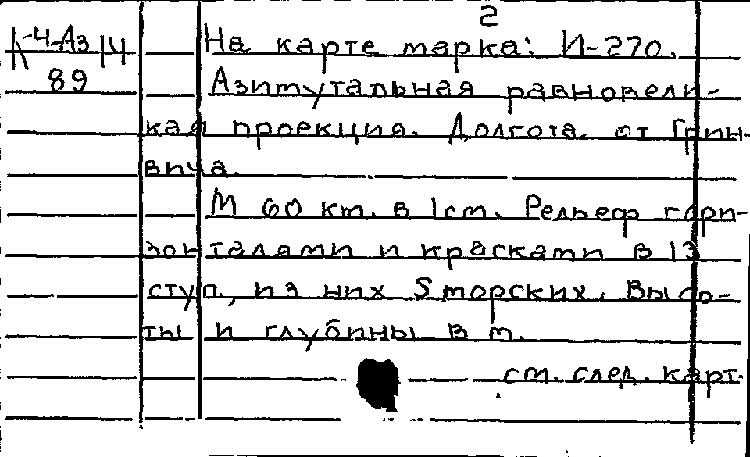 2
К-4-Аз/4
89
На карте марка: И-270.
Азимутальная равновели-
кая проекция. Долгота от Грин-
вича.
М 60 км. в 1 см. Рельеф гори-
зонталями и красками в 13
ступ., из них 5 морских. Высо-
ты и глубины в м.
см. след. карт.